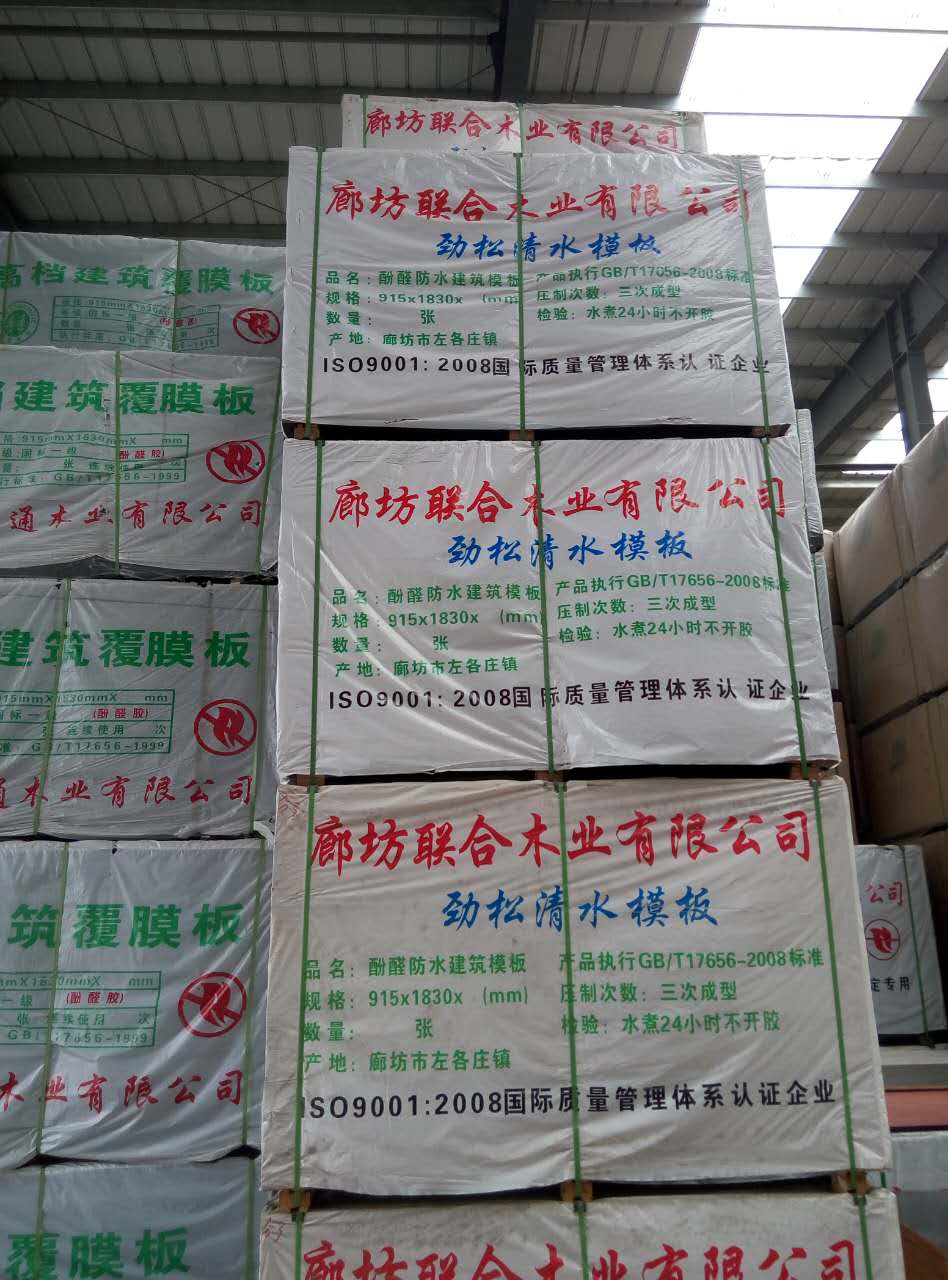 廊坊联合木业有限公司
廊坊联合木业有限公司
劲松清水模板
品名：酚醛防水建筑模板 产品执行GB/T17656-2008标准
规格：915x1830x (mm 压制次数：三次成型
数量： 张 检验：水煮24小时不开胶
产地：廊坊市左各庄镇
ISO9001:2008国际质量管理体系认证企业
廊坊联合木业有限公司
劲松清水模板
品名：酚醛防水建筑模板 产品执行GB/T17656-2008标准
规格：915x1830x (mm) 压制次数：三次成型
数量： 张 检验：水煮24小时不开胶
产地：廊坊市左各庄镇
ISO9001:2008国际质量管理体系认证企业
廊坊联合木业有限公司
劲松清水模板
品名：酚醛防水建筑模板 产品执行GB/T17656-2008标准
规格：915x1830x (mm) 压制次数：三次成型
数量： 张 检验：水煮24小时不开胶
产地：廊坊市左各庄镇
ISO9001:2008国际质量管理体系认证企业
廊坊联合木业有限公司
高档建筑覆膜板
建筑覆膜板
格:915mmX1830mmX mm
级:国标一级 (酚醛胶)
量: 张 连续使用 次
行标准:GB/T17656-1999
通木业有限公司
建筑覆膜板
915mmX1830mmX mm
国标一级 (酚醛胶)
张 连续使用 次
准: GB/T17656-1999
通木业有限公司
筑覆膜板
mX1830mmX mm
一级 (酚醛胶)
张 连续使用 次
GB/T17656-1999
木业有限公司
覆膜板
公司
定专用